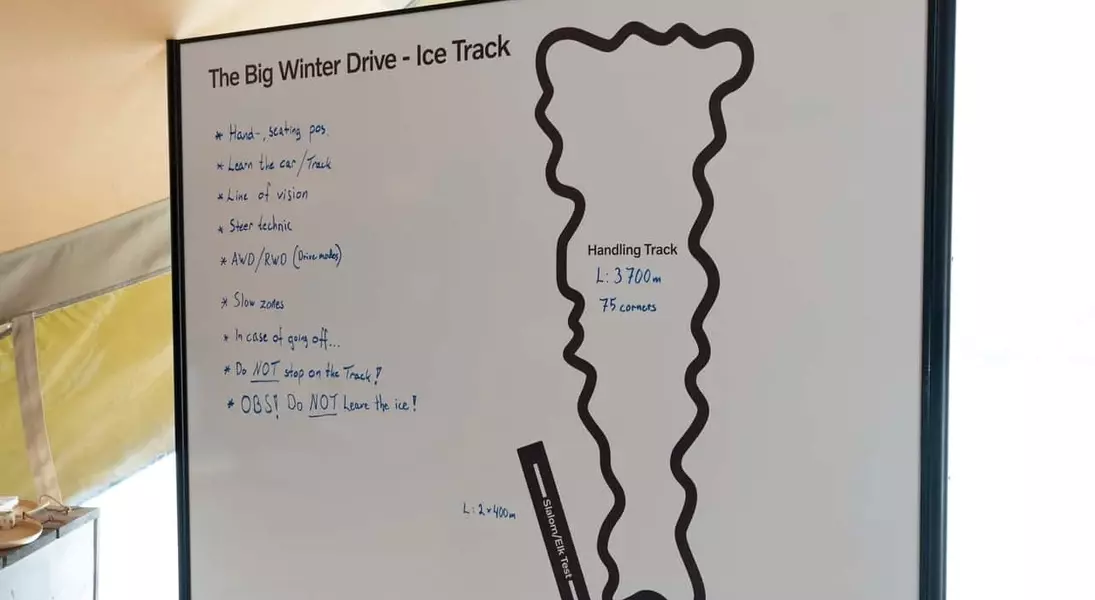 The Big Winter Drive - Ice Track
* Hand-, seating pos.
* Learn the car/Track
* Line of vision
* Steer technic
* AWD/RWD (Drive modes)
* Slow zones
* In case of going off...
* Do NOT stop on the Track!
* OBS! Do NOT Leave the ice!
Handling Track
L: 3700m
75 corners
L: 2×400m
Slalom/Elk Test